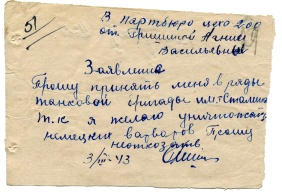 51
В Партбюро цеха 200
от Гришиной Нании
Васильевны
Заявление
Прошу принять меня в ряды
танковой бригады им. т. Сталина
т.к я желаю уничтожать
немецких варваров Прошу
неотказать.
3/III-43